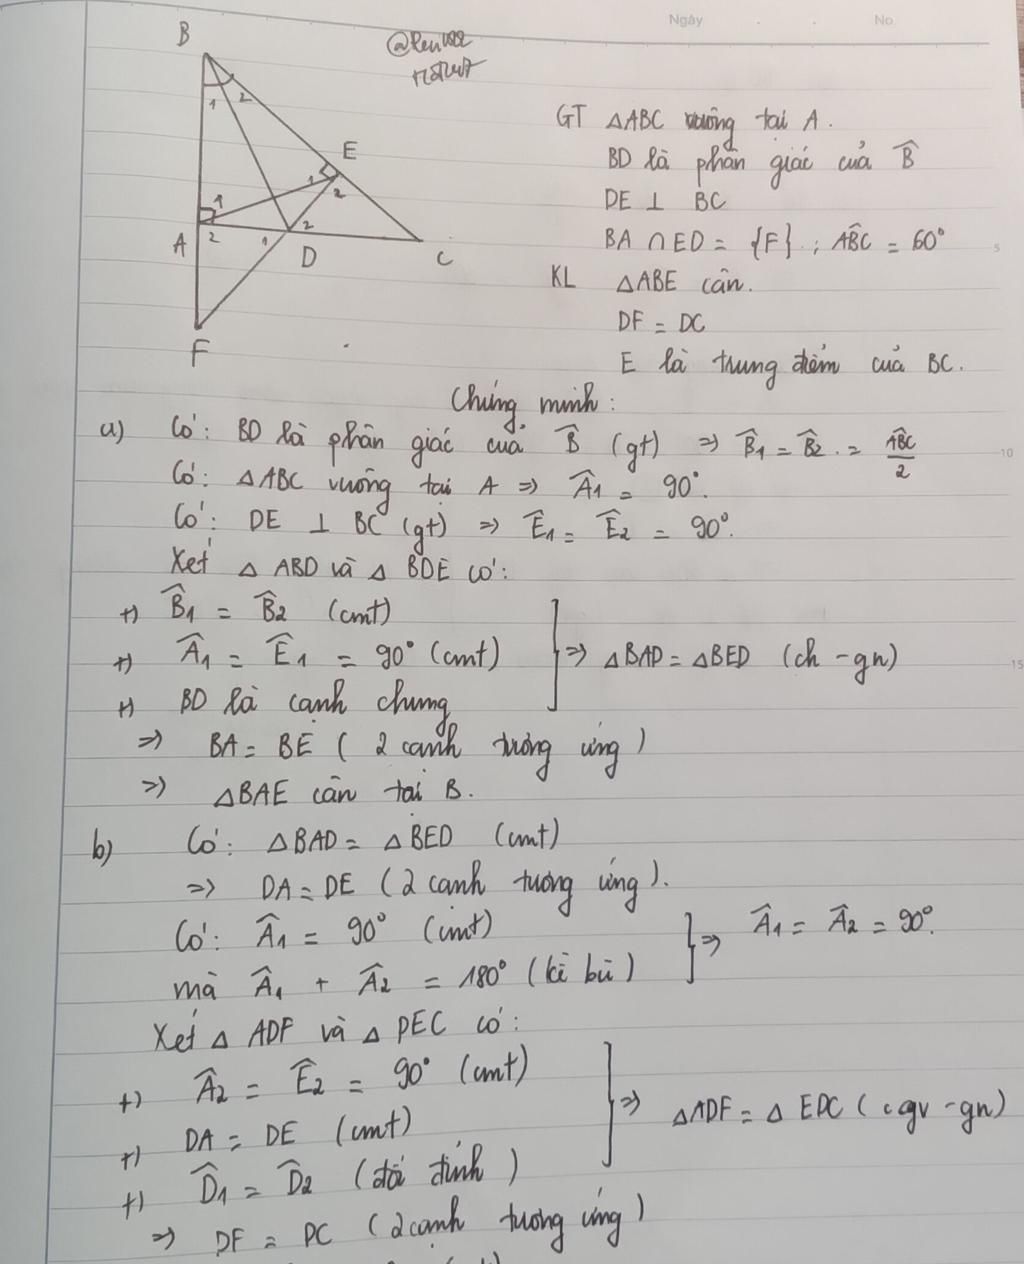 Ngày . . No
B
1 2
E
1
2
1
A 2
1
2
D
C
F
GT △ABC vuông tại A.
BD là phân giác của B̂
DE ⊥ BC
BA ∩ ED = {F} ; AB̂C = 60°
KL △ABE cân.
DF = DC
E là trung điểm của BC.
Chứng minh:
a) Có: BD là phân giác của B̂ (gt) => B̂1 = B̂2 . = AB̂C/2
Có: △ABC vuông tại A => Â1 = 90°.
Có: DE ⊥ BC (gt) => Ê1 = Ê2 = 90°.
Xét △ ABD và △ BDE có:
+) B̂1 = B̂2 (cmt)
+) Â1 = Ê1 = 90° (cmt) => △BAD = △BED (ch - gn)
+) BD là cạnh chung
=> BA = BE ( 2 cạnh tương ứng )
=> △BAE cân tại B.
b) Có: △BAD = △BED (cmt)
=> DA = DE ( 2 cạnh tương ứng ).
Có: Â1 = 90° (cmt) => Â1 = Â2 = 90°.
mà Â1 + Â2 = 180° ( kề bù )
Xét △ ADF và △ DEC có:
+) Â2 = Ê2 = 90° (cmt)
+) DA = DE (cmt) => △ADF = △ EDC ( cgv - gn )
+) D̂1 = D̂2 ( đối đỉnh )
=> DF = DC ( 2 cạnh tương ứng )